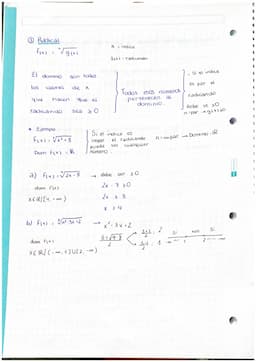 ③ Radical
f(x) = ⁿ√g(x)
n = índice
g(x) = radicando
El dominio son todos
los valores de x
que hacen que el
radicando sea ≥ 0
Todos esos números
pertenecen al
dominio.
- Si el índice
es par el
radicando
debe se ≥ 0
n = par → g(x) ≥ 0
• Ejemplo
f(x) = ∛x²-3
Dom f(x) = ℝ
Si el índice es
impar el radicando
puede ser cualquier
número
n = impar → Dominio: ℝ
a) f(x) = √2x-8 → debe ser ≥ 0
dom f(x)
2x - 8 ≥ 0
2x ≥ 8
x ≥ 4
b) f(x) = √x²-3x+2 → x² - 3x + 2
dom f(x)
X ∈ ℝ / (-∞, 1] ∪ [2, -∞)